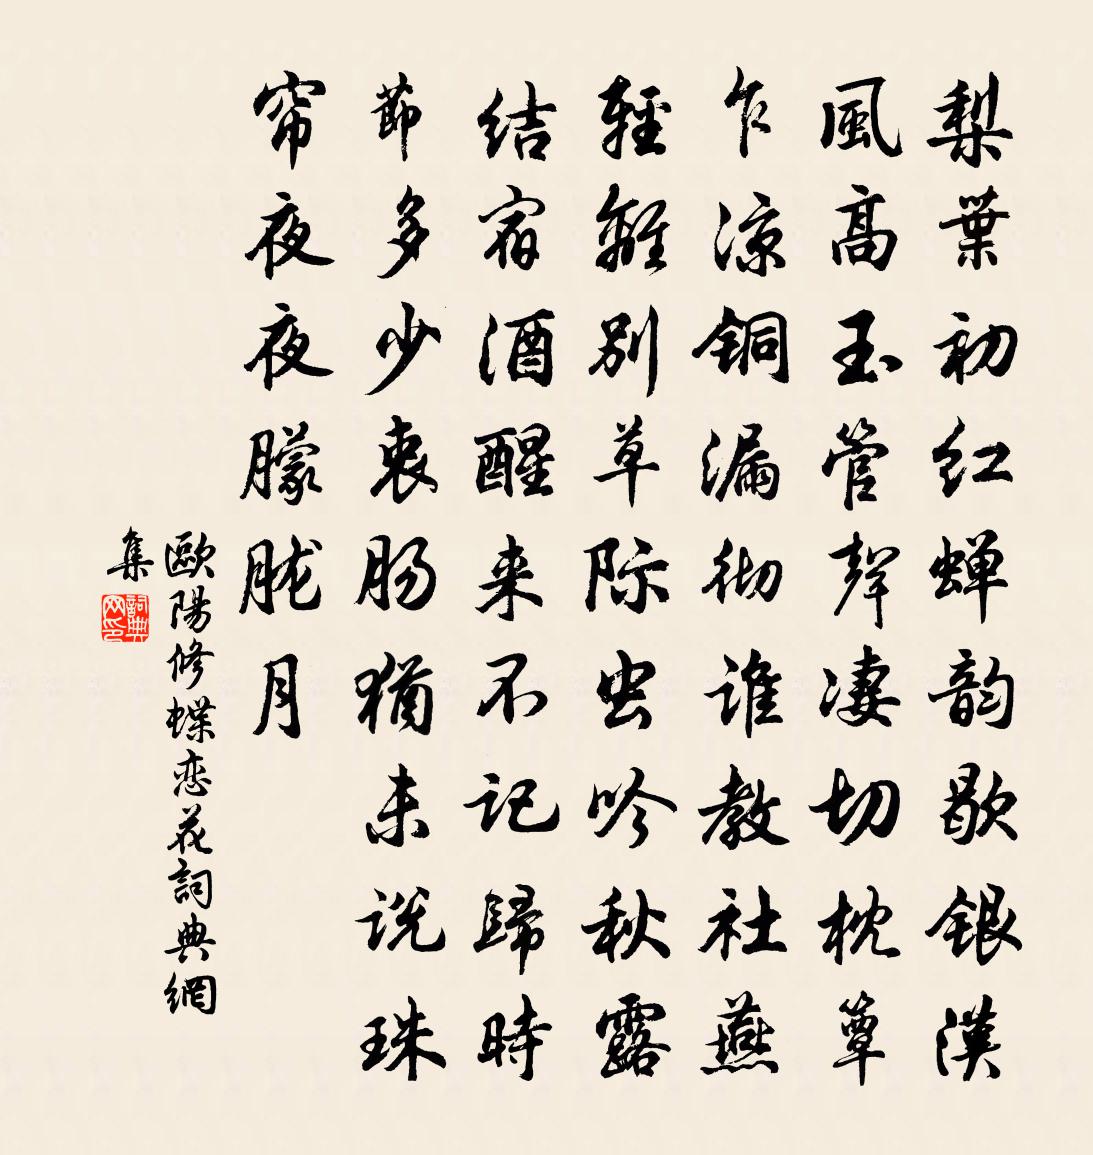 梨葉初红蝉韵歇银漢
風高玉管聲凄切枕簟
乍涼铜漏彻谁教社燕
輕離别草际虫吟秋露
结宿酒醒来不记歸時
節多少衷肠猶未说珠
帘夜夜朦胧月
歐陽修蝶恋花詞典網
集
詞典
网印